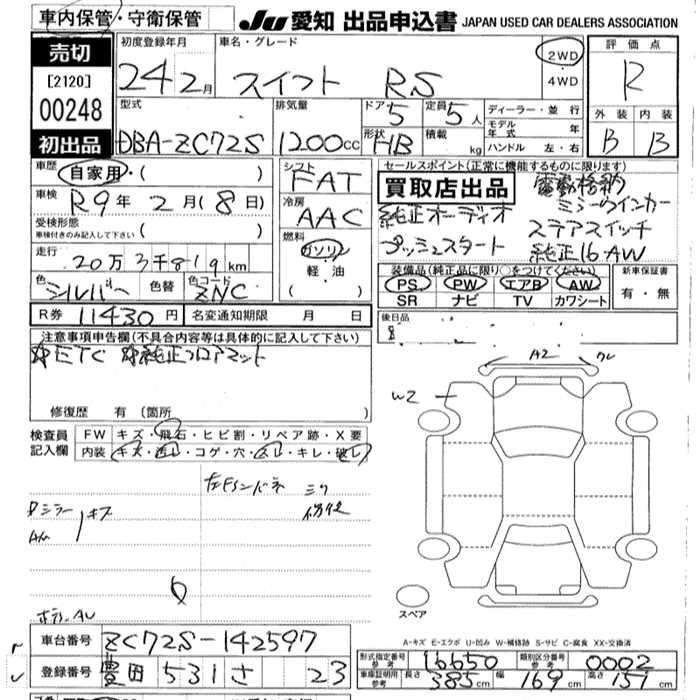 車内保管・守衛保管
JU 愛知 出品申込書 JAPAN USED CAR DEALERS ASSOCIATION
売切
[2120]
00248
初出品
初度登録年月
24 2月
車名・グレード
スイフト RS
2WD
4WD
評価点
R
外装 内装
B B
型式
DBA-ZC72S
排気量
1200cc
ドア 5
形状 HB
定員 5人
積載 kg
ディーラー・並行
モデル年式 年
ハンドル 左・右
車歴 自家用・( )
車検 R9年 2月(8日)
受検形態
車検付きのみ記入して下さい ( )
走行 20万3千819km
色 シルバー 色替 色コード ZNC
R券 11430円 名変通知期限 月 日
シフト
FAT
冷房
AAC
燃料
ガソリン
軽油
( )
セールスポイント(正常に機能するものに限ります)
買取店出品
電動格納
ミラーウインカー
純正オーディオ ステアスイッチ
プッシュスタート 純正16AW
装備品(純正品に限り○をつけてください)
PS PW エアB AW
SR ナビ TV カワシート
新車保証書
有・無
後日品
注意事項申告欄(不具合内容等は具体的に記入して下さい)
ETC 純正フロアマット
修復歴 有(箇所 )
検査員記入欄
FW キズ・飛石・ヒビ割・リペア跡・X要
内装 キズ・汚レ・コゲ・穴・スレ・キレ・破レ
キズ
A2
W2
スペア
A-キズ E-エクボ U-凹み W-補修跡 S-サビ C-腐食 XX-交換済
車台番号 ZC72S-142597
登録番号 豊田 531 さ 23
形式指定番号 参考 16650 類別区分番号 参考 0002
車庫証明用 参考 長さ 385cm 幅 169cm 高さ 151cm